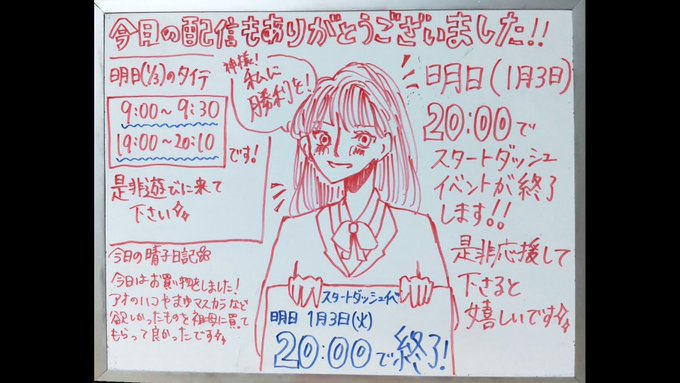 今日の配信もありがとうございました!!
明日(1/3)のタイテ
9:00〜9:30
19:00〜20:10
です!
是非遊びに来て
下さい
神様!
私に
勝利を!
明日(1月3日)
20:00で
スタートダッシュ
イベントが終了
します!!
是非応援して
下さると
嬉しいです
今日の晴子日記
今日はお買い物をしました!
アオのハコやまゆマスカラなど
欲しかったものを祖母に買って
もらって良かったです
スタートダッシュイベ
明日 1月3日(火)
20:00で終了!